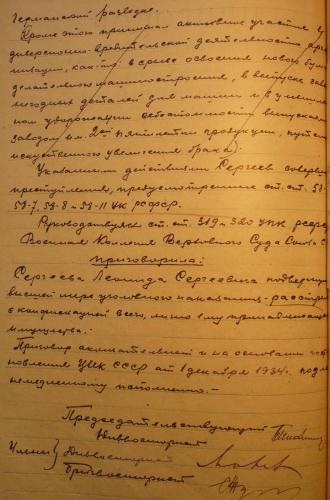 германской разведке.
Кроме этого принимал активное участие в
диверсионно-вредительской деятельности орга-
низации, как-то в срыве освоения новой бума-
годелательного машиностроения, в выпуске заве-
негодных деталей для машин и в умышлен-
ном удорожании себестоимости выпускаемой
заводом им. 2ой пятилетки продукции, путем
искуственного увеличения брака.
Указанными действиями Сергеев совершил
преступления, предусмотренные ст. ст. 58-
58-7, 58-8 и 58-11 УК РСФСР.
Руководствуясь ст. ст. 319 и 320 УПК РСФСР
Военная Коллегия Верховного Суда Союза С
приговорила:
Сергеева Леонида Сергеевича подвергнуть
высшей мере уголовного наказания - расстрелу
с конфискацией всего, лично ему принадлежащего
имущества.
Приговор окончательный и на основании пост
новления ЦИК СССР от 1 декабря 1934г. подле
немедленному исполнению. -
Председательствующий
Диввоенюрист
Члены Диввоенюрист
Бригвоенюрист